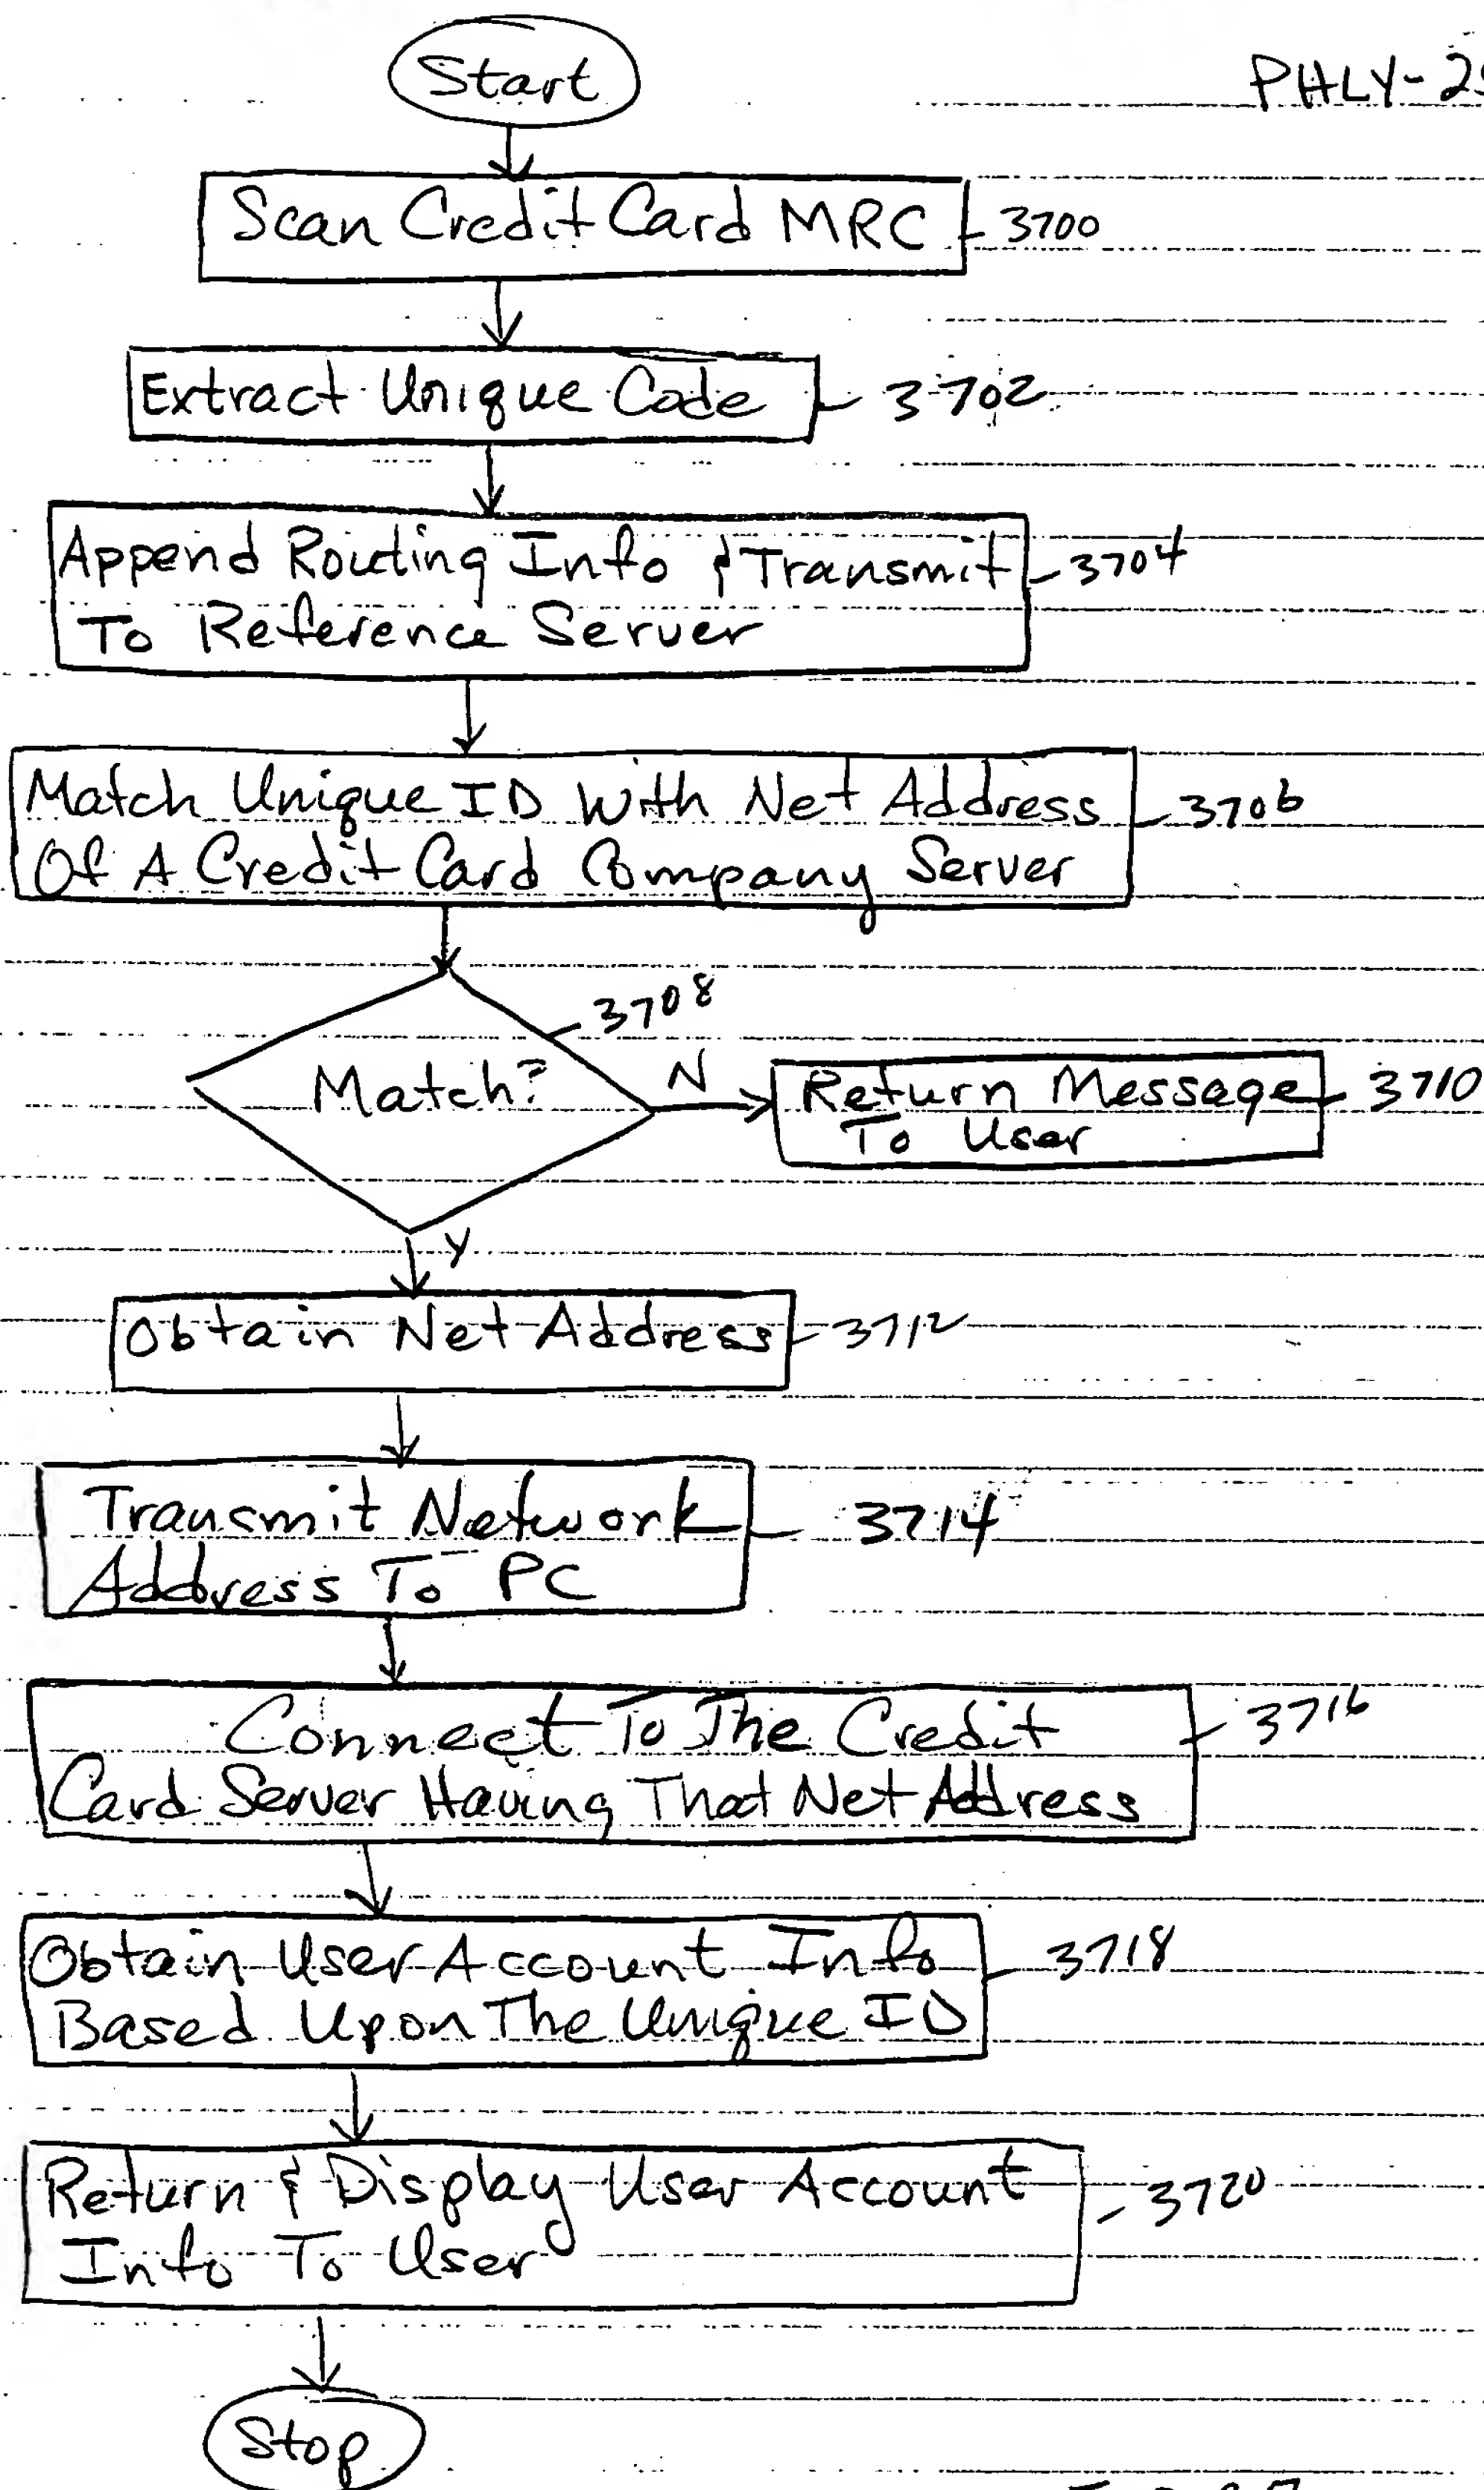 Start
PHLY-25
Scan Credit Card MRC 3700
Extract Unique Code 3702
Append Routing Info & Transmit 3704
To Reference Server
Match Unique ID With Net Address 3706
Of A Credit Card Company Server
3708
Match?
N
Return Message 3710
To User
Y
Obtain Net Address 3712
Transmit Network 3714
Address To PC
Connect To The Credit 3716
Card Server Having That Net Address
Obtain User Account Info 3718
Based Upon The Unique ID
Return & Display User Account 3720
Info To User
Stop